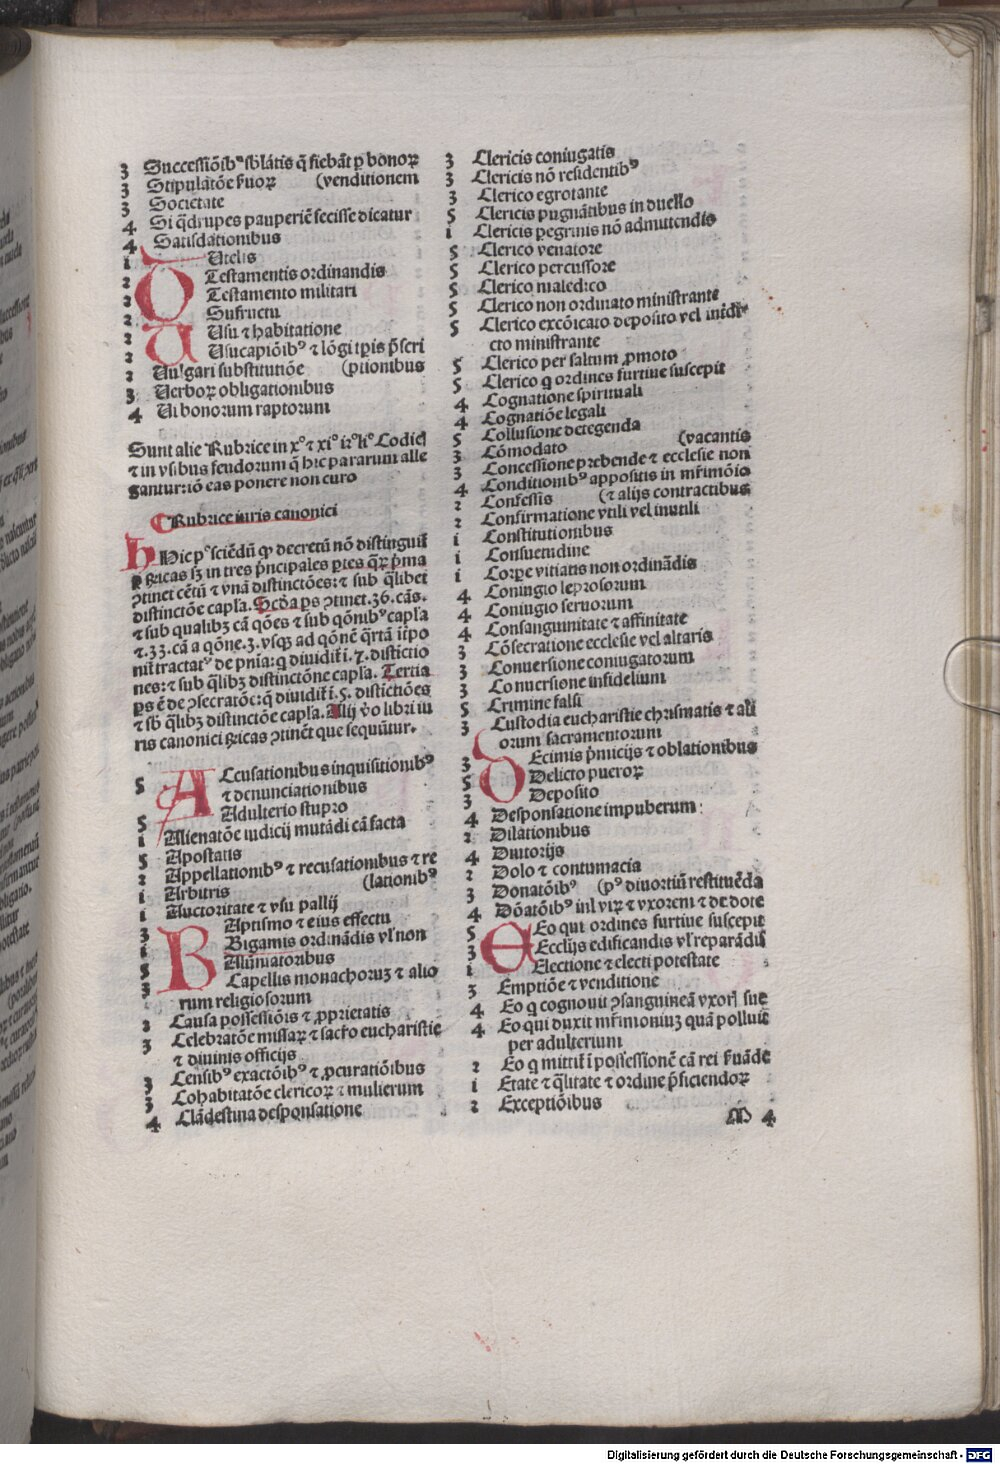 3 Successiōibꝰ sblatis q̄ fiebāt ꝑ bonoꝝ
3 Stipulatōe ẜuoꝝ (venditionem
3 Societate
4 Si q̄drupes pauperiē fecisse dicatur
4 Satisdationibus
1 Utelis
2 Testamentis ordinandis
2 Testamento militari
2 Sufructu
2 Usu ⁊ habitatione
2 Usucapiōibꝰ ⁊ lōgi tꝑis p̄scri
2 Vulgari substitutiōe (ptionibus
3 Verboꝝ obligationibus
4 Vi bonorum raptorum
Sunt alie Rubrice in xͦ ⁊ xiͦ ⁊ liͦ Codicꝭ
⁊ in vsibus feudorum q̄ hic pararum alle
gantur: iō eas ponere non curo
Rubrice iuris canonici
Hic pͦ sciēdū ꝙ decretū nō distinguit̄
ꝑ Rricas sꝫ in tres p̄ncipales ꝑtes q̄ꝝ p̄ma
ꝯtinet cētū ⁊ vnā distinctōes: ⁊ sub q̄libet
distinctōe capla. Scd̄a ꝑs ꝯtinet .36. cās.
⁊ sub qualibꝫ cā qōes ⁊ sub qōnibꝰ capla
⁊ .33. cā a qōne .3. vsqꝫ ad qōnē q̄rtā iteꝝ
nit̄ tractatꝰ de pn̄ia: q̄ diuidit̄ ī .7. distinctio
nes: ⁊ sub q̄libꝫ distinctōne capla. Tertia
ꝑs ē de ꝯsecratōe: q̄ diuidit̄ ī .5. distictiōes
⁊ sb̄ q̄libꝫ distinctōe capla. Alij v̄o libri iu
ris canonici Rricas ꝯtinēt que sequūtur.
5 Accusationibus inquisitionibꝰ
⁊ denunciationibus
5 Adulterio stupro
1 Alienatōe iudicij mutādi cā facta
5 Apostatis
2 Appellationibꝰ ⁊ recusationibus ⁊ re
1 Arbitris (lationibꝰ
1 Auctoritate ⁊ vsu pallij
3 Baptismo ⁊ eius effectu
1 Bigamis ordinādis vl̓ non
5 Calūniatoribus
3 Capellis monachoruꝫ ⁊ alio
rum religiosorum
2 Causa possessiōis ⁊ ꝓprietatis
3 Celebratōe missaꝝ ⁊ sacr̄o eucharistie
⁊ diuinis officijs
3 Censibꝰ exactōibꝰ ⁊ ꝓcuratiōibus
3 Cohabitatōe clericoꝝ ⁊ mulierum
4 Clādestina desponsatione
3 Clericis coniugatis
3 Clericis nō residentibꝰ
3 Clerico egrotante
5 Clericis pugnātibus in duello
1 Clericis peregrinis nō admittendis
5 Clerico venatore
5 Clerico percussore
5 Clerico maledico
5 Clerico non ordinato ministrante
5 Clerico excōicato deposito vel int̄di
cto ministrante
5 Clerico per saltum ꝓmoto
5 Clerico q̄ ordines furtiue suscepit
4 Cognatione spirituali
4 Cognatiōe legali
5 Collusione detegenda
3 Cōmodato (vacantis
3 Concessione prebende ⁊ ecclesie non
4 Conditionibꝰ appositis in mr̄imōio
2 Confessis (⁊ alijs contractibus
2 Confirmatione vtili vel inutili
1 Constitutionibus
1 Consuetudine
1 Corꝑe vitiatis non ordinādis
4 Coniugio leprosorum
4 Coniugio seruorum
4 Consanguinitate ⁊ affinitate
3 Cōsecratione ecclesie vel altaris
3 Conuersione coniugatorum
3 Conuersione infidelium
5 Crimine falsi
3 Custodia eucharistie chrismatis ⁊ ali
orum sacramentorum
3 Decimis p̄micijs ⁊ oblationibus
5 Delicto pueroꝝ
3 Deposito
4 Desponsatione impuberum :
2 Dilationibus
4 Diuitorijs
2 Dolo ⁊ contumacia
3 Donatōibꝰ (pꝰ diuortiū restituēda
4 Dōatōibꝰ int̄ viꝝ ⁊ vxorem ⁊ de dote
5 Eo qui ordines furtiue suscepit
3 Ecclijs edificandis vl̓ reparādis
1 Electione ⁊ electi potestate
3 Emptiōe ⁊ venditione
4 Eo q̄ cognouit ꝯsanguineā vxorꝭ sue
4 Eo qui duxit mr̄imoniuꝫ quā polluit
per adulterium
2 Eo q̄ mittit̄ ī possessionē cā rei ẜuāde
1 Etate ⁊ q̄litate ⁊ ordine p̄ficiendoꝝ
2 Exceptiōibus
M 4
Digitalisierung gefördert durch die Deutsche Forschungsgemeinschaft - DFG